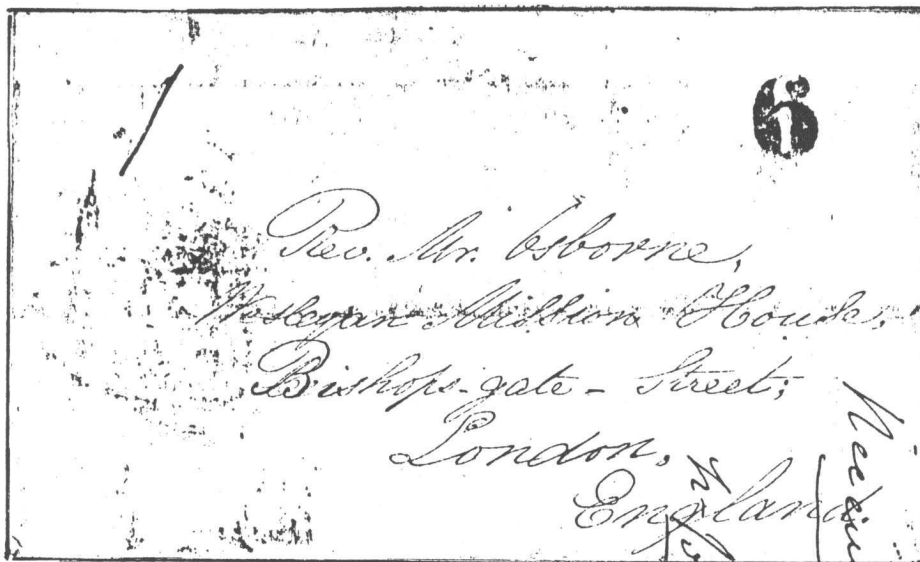 6
Rev. Mr. Osborne,
Wesleyan Mission House,
Bishops-gate - Street,
London,
England